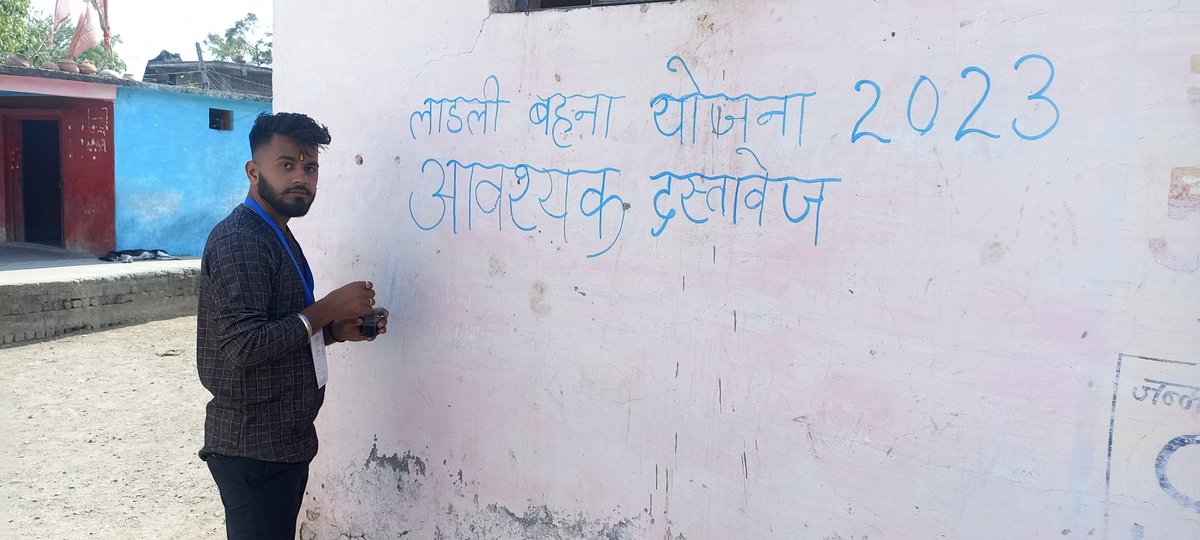 लाडली बहना योजना 2023
आवश्यक दस्तावेज